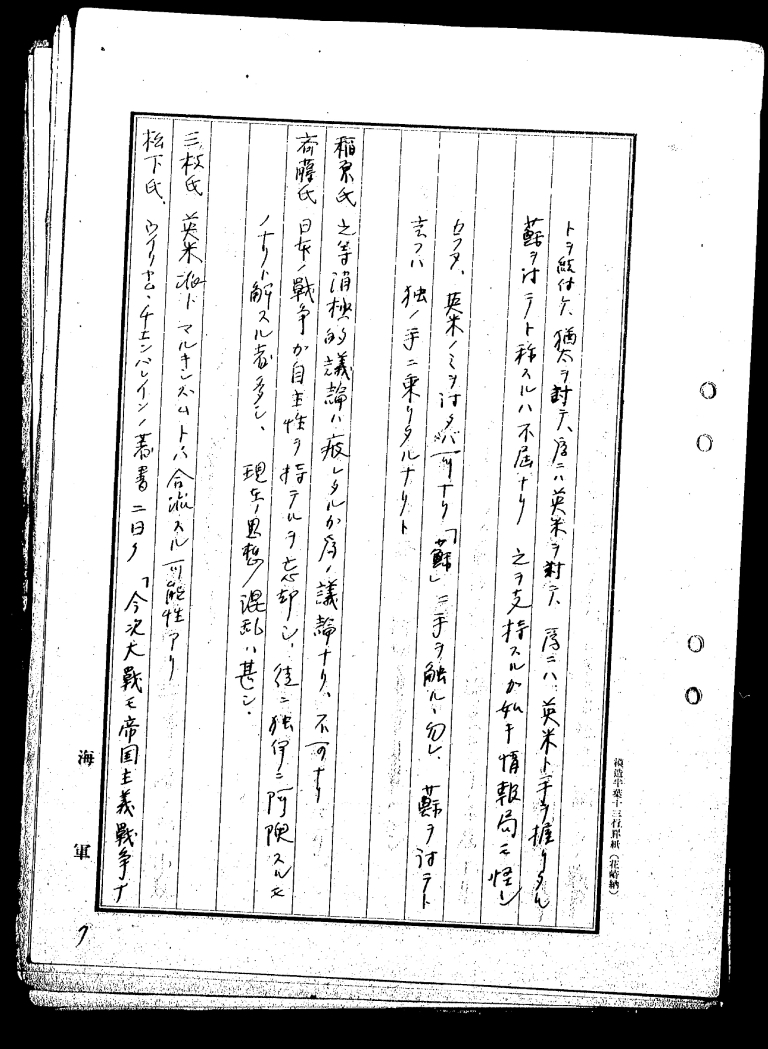 トヲ結付ケ、猶太ヲ討テ、序ニハ英米ヲ討テ、序ニハ英米ト手ヲ握リタル
蘇ヲ討テト称スルハ不届ナリ 之ヲ支持スルカ如キ情報局モ怪シ
カラヌ、英米ノミヲ討タバ可ナリ「蘇」ニ手ヲ触ルヽ勿レ、蘇ヲ討テト
云フハ独ノ手ニ乗リタルナリト
稲原氏 之等消極的議論ハ疲レタルカ為ノ議論ナリ、不可ナリ
斉藤氏 日本ノ戦争カ自主性ヲ持テルヲ忘却シ、徒ニ独伊ニ阿諛スルモ
ノナリト解スル者多シ、現在ノ思想ノ混乱ハ甚シ、
三枝氏 英米派ト マルキシズムトハ合流スル可能性アリ
松下氏、ウイリヤム・チエンバレインノ著書ニ曰ク「今次大戦モ帝国主義戦争ナ
海軍
7
半葉十三行罫紙